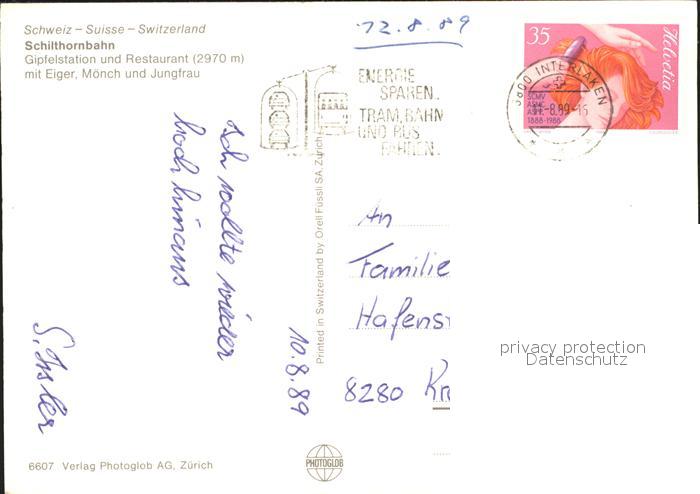 Schweiz – Suisse – Switzerland
Schilthornbahn
Gipfelstation und Restaurant (2970 m)
mit Eiger, Mönch und Jungfrau
12.8.89
ENERGIE
SPAREN.
TRAM, BAHN
UND BUS
FAHREN.
3800 INTERLAKEN
8.89-16
35
Helvetia
1888-1988
Ich wollte wieder
hoch hinaus
10.8.89
Printed in Switzerland by Orell Füssli SA, Zürich
An
Familie
Hafens
8280 Kr
privacy protection
Datenschutz
6607 Verlag Photoglob AG, Zürich
PHOTOGLOB